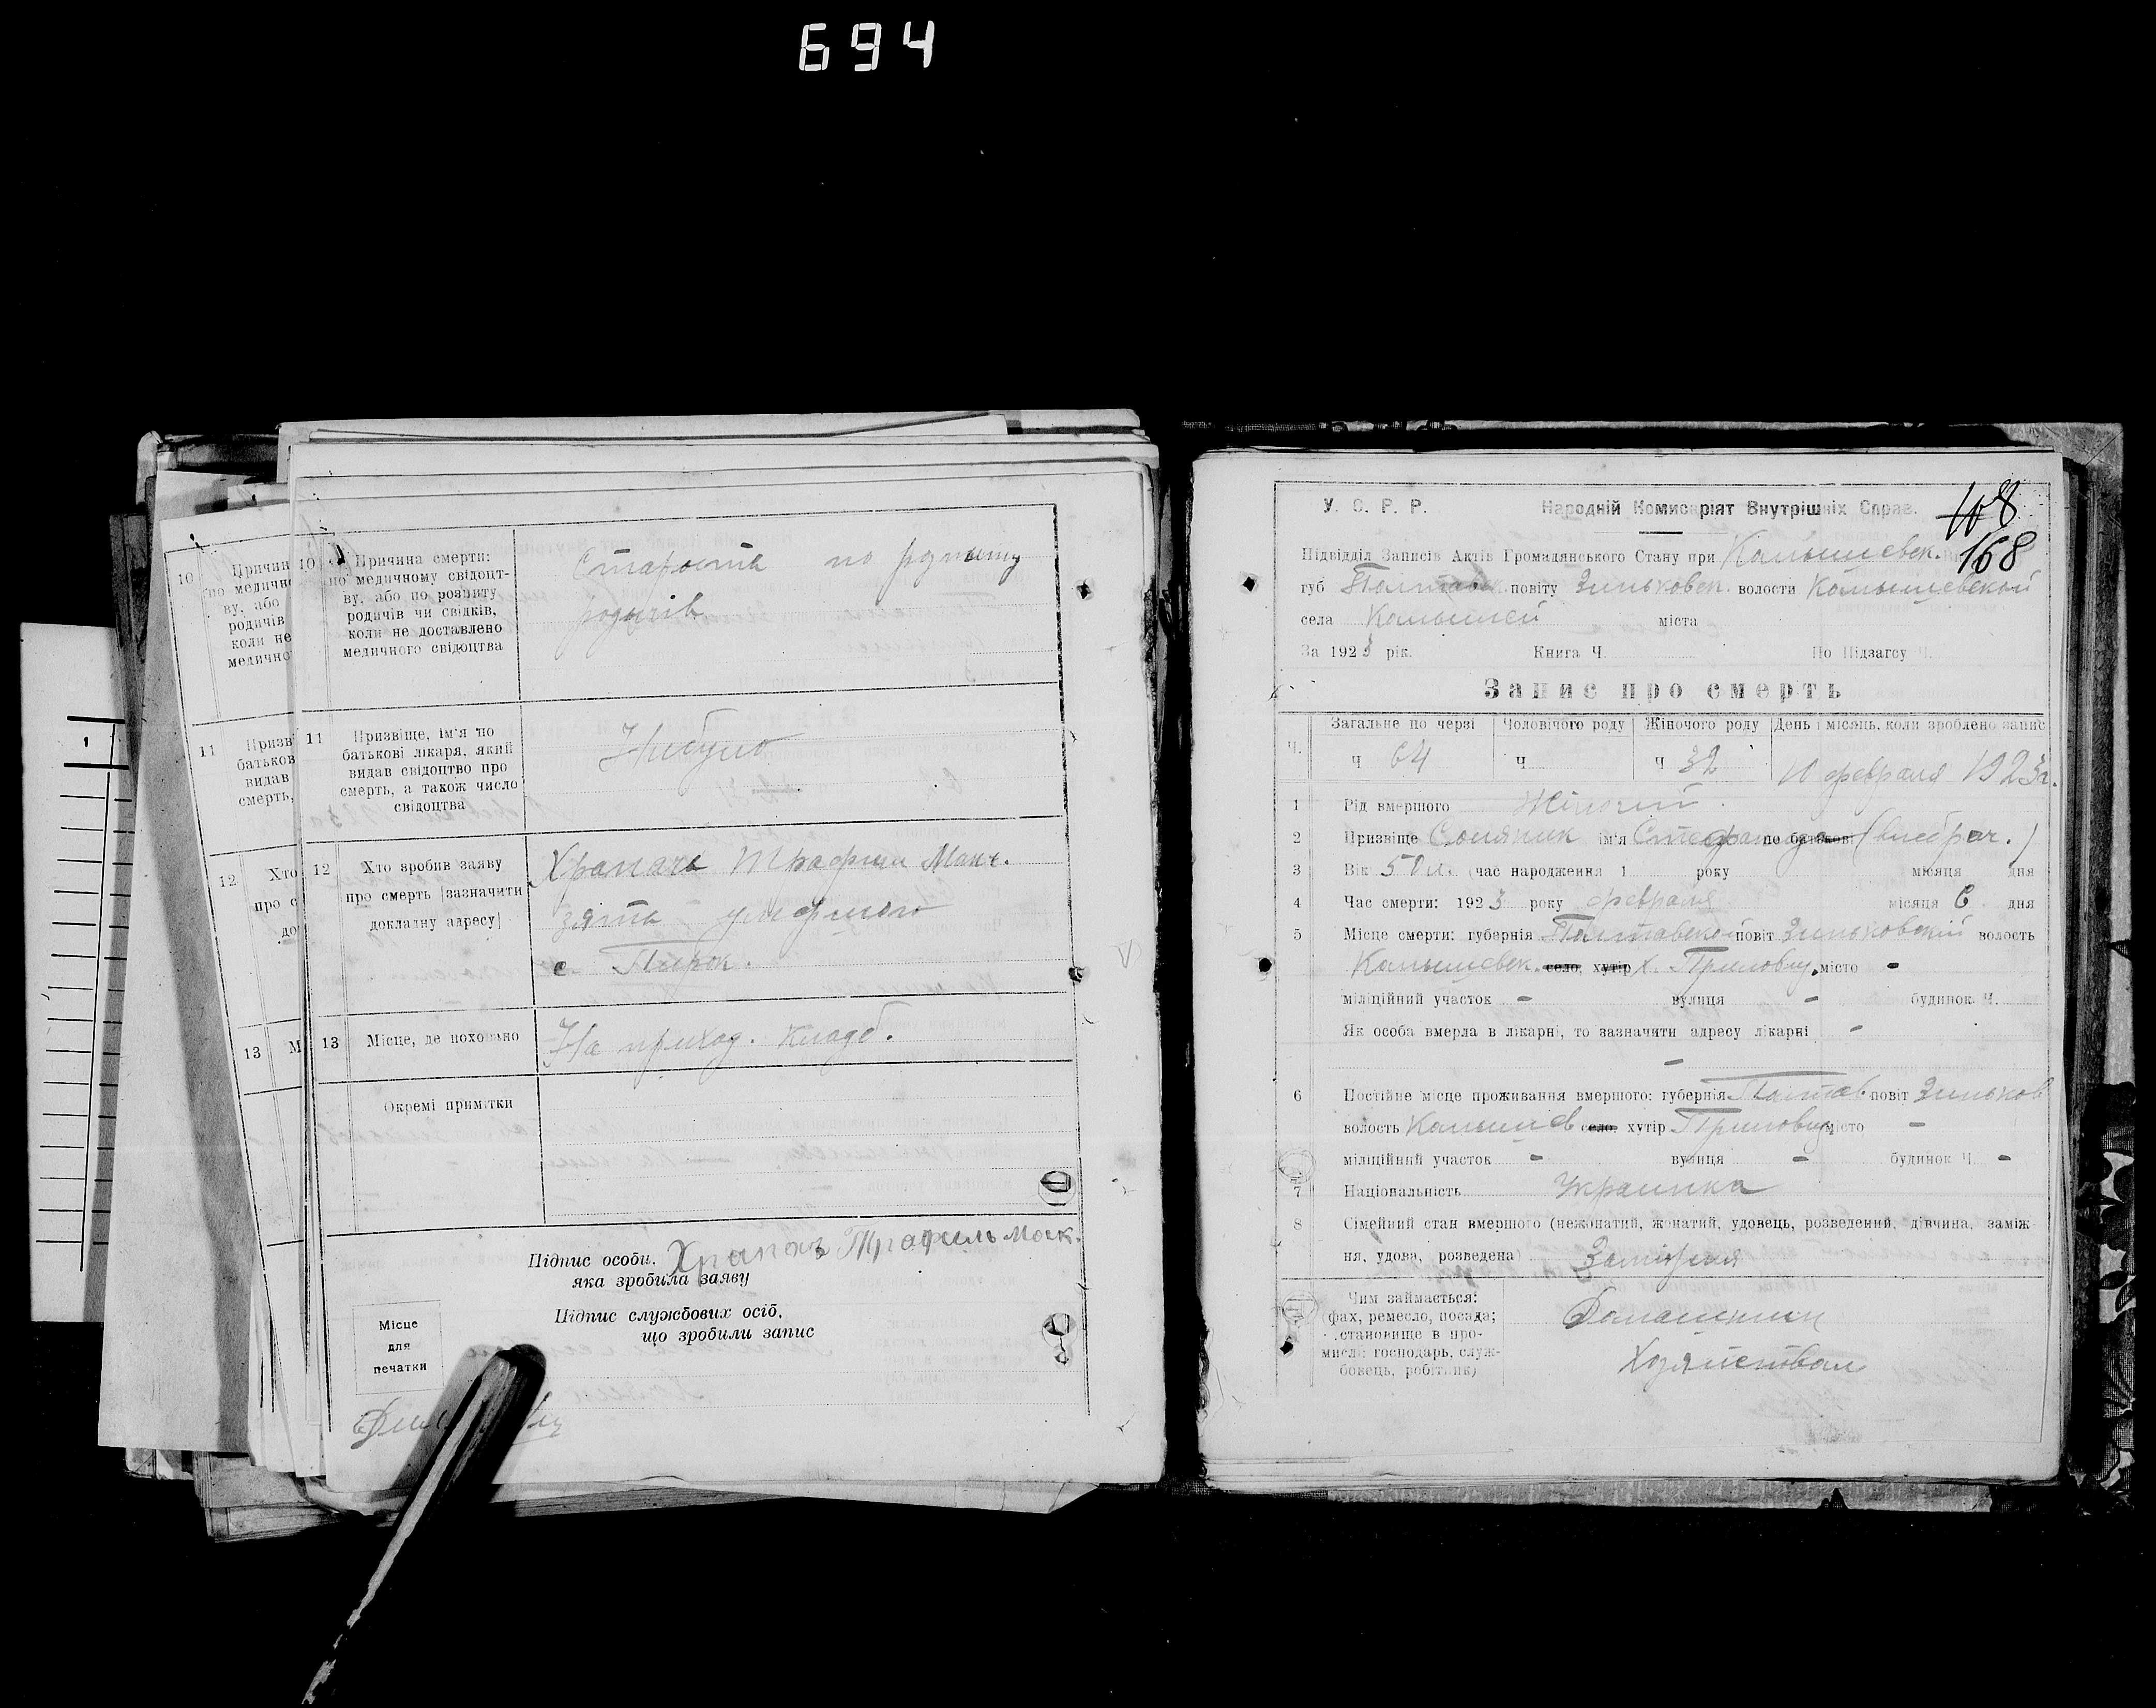 694
10
Причина смерти:
по медичному свідоцт-
ву, або по розпиту
родичів чи свідків,
коли не доставлено
медичного свідоцтва
Старость по рдпыту
родичів
11
Призвіще, ім'я по
батькові лікаря, який
видав свідоцтво про
смерть, а також число
свідоцтва
Небуло
12
Хто зробив заяву
про смерть [зазначити
докладну адресу]
Храпачь
зята умершого
с.
13
Місце, де поховано
На приход. кладб.
Окремі примітки
Підпис особи,
яка зробила заяву
Підпис службових осіб,
що зробили запис
Місце
для
печатки
10
Причин
по медично
ву, або
родичів
коли не
медично
11
Призв
батьков
видав
смерть,
12
Хто
про с
до
13
М
1
У. С. Р. Р.
Народній Комисаріят Внутрішніх Справ.
168
Підвідділ Записів Актів Громадянського Стану при Камышевск.
губ Полтавск. повіту Зиньковск. волости Камышевской
села Камышей міста
За 1923 рік. Книга Ч. По Підзагсу Ч.
Запис про смерть
Ч. Загальне по черзі Чоловічого роду Жіночого роду День і місяць, коли зроблено запис
ч 64 ч ч 32 10 февраля 1923г.
1 Рід вмершого Жіночий
2 Призвіще ім'я Стефанида по батькові (внебрач.)
3 Вік 50 л. (час народження 1 року місяця дня
4 Час смерти: 1923 року февраля місяця 6 дня
5 Місце смерти: губернія Полтавской повіт Зиньковский волость
Камышевск. село, хутір х. місто -
міліційний участок - вулиця - будинок Ч.
Як особа вмерла в лікарні, то зазначити адресу лікарні -
-
6 Постійне місце проживання вмершого: губернія Полтав. повіт Зиньков
волость Камышев село, хутір місто -
міліційний участок - вулиця - будинок Ч. -
7 Національність Украинка
8 Сімейний стан вмершого (нежонатий, жонатий, удовець, розведений, дівчина, заміж-
ня, удова, розведена)
Чим займається:
(фах, ремесло, посада;
становище в про-
мислі: господарь, служ-
бовець, робітник)
Домашним